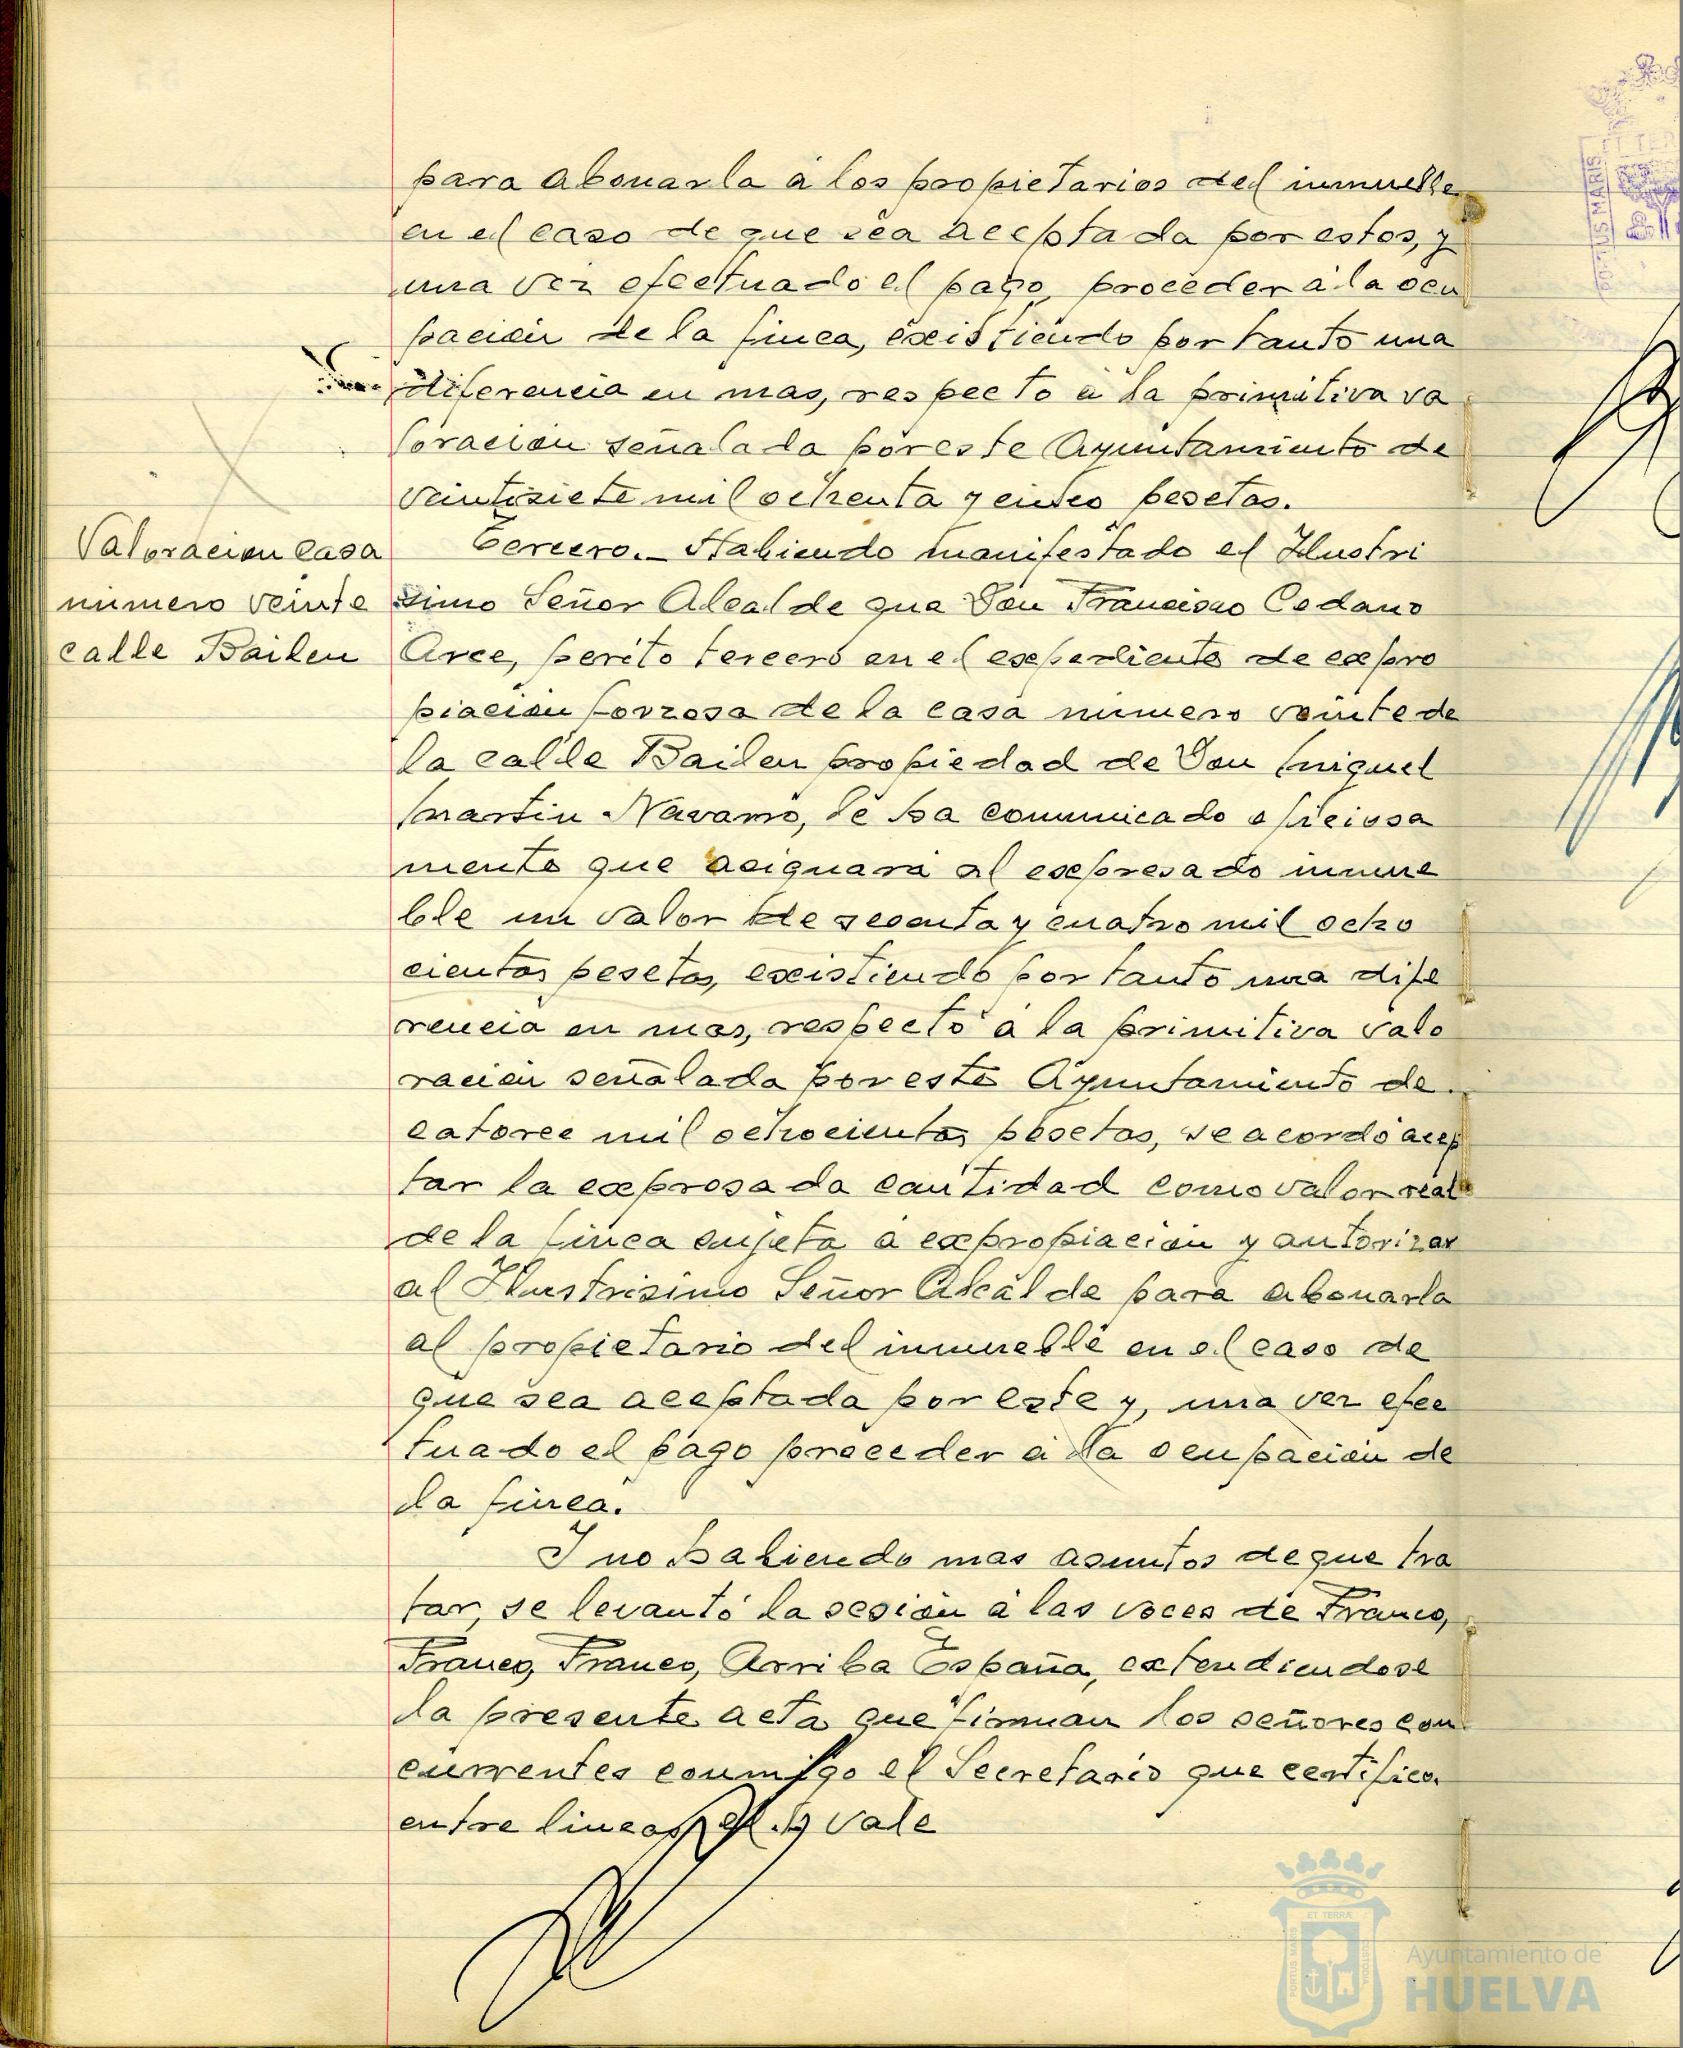 para abonarla á los propietarios del inmueble
en el caso de que sea aceptada por estos, y
una vez efectuado el pago, proceder á la ocu
pación de la finca, existiendo por tanto una
diferencia en mas, respecto á la primitiva va
loración señalada por este Ayuntamiento de
veintisiete mil ochenta y cinco pesetas.
Valoracion casa
numero veinte
calle Bailen
Tercero.- Habiendo manifestado el Ilustri
simo Señor Alcalde que Don Francisco Cedano
Arce, perito tercero en el expediente de expro
piación forzosa de la casa numero veinte de
la calle Bailen propiedad de Don Miguel
Martin Navarro, le ha comunicado oficiosa
mente que asignará al expresado inmue
ble un valor de sesenta y cuatro mil ocho
cientas pesetas, existiendo por tanto una dife
rencia en mas, respecto á la primitiva valo
ración señalada por este Ayuntamiento de
catorce mil ochocientas pesetas, se acordó acep
tar la expresada cantidad como valor real
de la finca sujeta á expropiación y autorizar
al Ilustrisimo Señor Alcalde para abonarla
al propietario del inmueble en el caso de
que sea aceptada por este y, una vez efec
tuado el pago proceder á la ocupación de
la finca.
Y no habiendo mas asuntos de que tra
tar, se levantó la sesión á las voces de Franco,
Franco, Franco, Arriba España, extendiendose
la presente acta que firman los señores con
currentes conmigo el Secretario que certifico.
entre lineas vale
PORTUS MARIS
ET TERRÆ
CUSTODIA
Ayuntamiento de
HUELVA